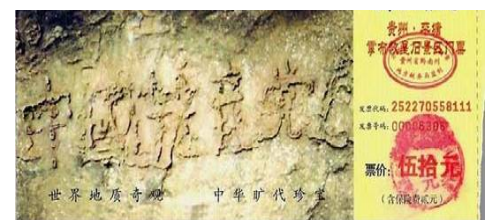 中國共产党
世界地质奇观 中华旷代珍宝
贵州·平塘
掌布救星石景区门票
贵州省黔南州
发票代码:252270558111
发票号码:00006306
票价:伍拾元
(含保险费贰元)